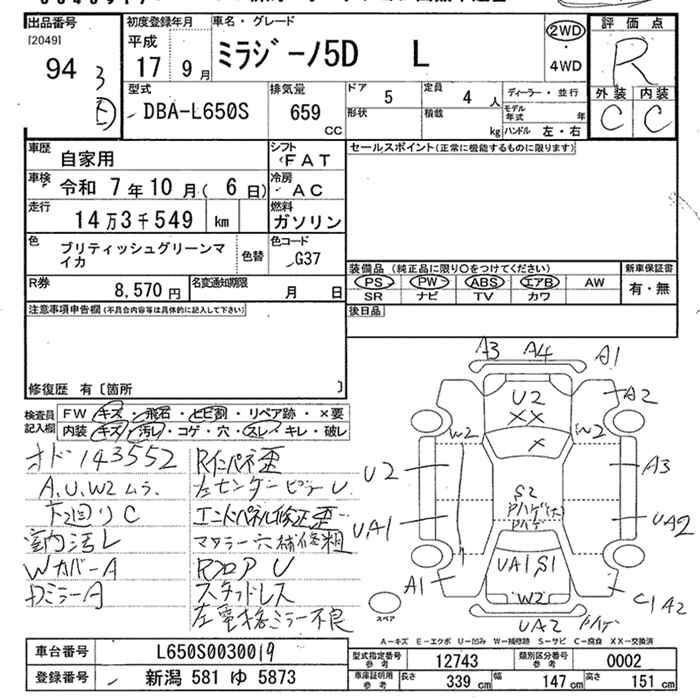 出品番号 初度登録年月 車名・グレード 評価点
[2049] 平成 ミラジーノ5D L 2WD R
94 3 17 9月 4WD
型式 排気量 ドア 5 定員 4人 ディーラー・並行 外装 内装
DBA-L650S 659 CC 形状 積載 kg モデル年式 年 C C
ハンドル 左・右
車歴 自家用 シフト FAT セールスポイント(正常に機能するものに限ります)
車検 令和 7年10月(6日) 冷房 AC
走行 14万3千549 km 燃料 ガソリン
色 ブリティッシュグリーンマイカ 色替 色コード G37
装備品 (純正品に限り○をつけてください) 新車保証書
R券 8,570円 名変通知期限 月 日 PS PW ABS エアB AW 有・無
SR ナビ TV カワ
注意事項申告欄(不具合内容等は具体的に記入して下さい) 後日品
修復歴 有〔箇所 〕
検査員記入欄 FW キズ・飛石・ヒビ割・リペア跡・×要
内装 キズ・汚レ・コゲ・穴・スレ・キレ・破レ
オド143552 Rインパネ歪
A.U.W2ムラ. 左センターピラーU
下廻りC エンドパネル修正歪
室内汚レ マフラー穴補修粗
WカバーA RフロアU
DミラーA スタッドレス
左電格ミラー不良
A3 A4 A1
U2 A2
XX
W2 × W2
U2 A3
S2
Pハゲ(大)
Pハゲ
UA1 UA2
UA1 S1
A1 W2 C1A2
UA2 Pハゲ
スペア
A-キズ E-エクボ U-凹み W-補修跡 S-サビ C-腐食 XX-交換済
車台番号 L650S0030019 型式指定番号 参考 12743 類別区分番号 参考 0002
登録番号 新潟 581 ゆ 5873 車庫証明用 参考 長さ 339cm 幅 147cm 高さ 151cm